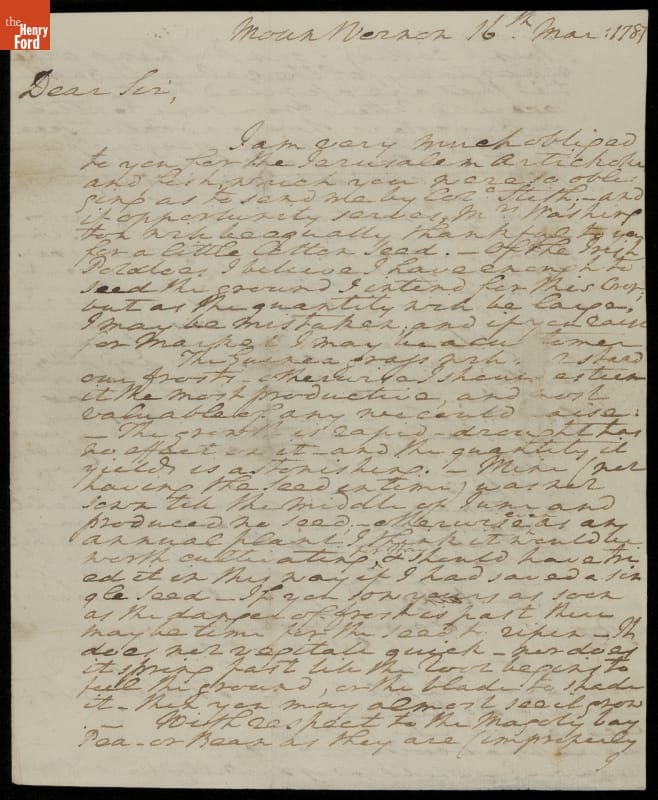 the
Henry
Ford
Moun Vernon 16th Mar: 1787
Dear Sir,
I am very much obliged
to you for the Jerusalem Artichoke
and fish, which you were so obli-
ging as to send me by Colo. Stith, - and
if opportunity serves, Mrs. Washing
ton will be equally thankful to you
for a little Cotton Seed. - Of the Irish
Potatoe, I believe I have enough to
seed the ground I intend for this Crop,
but as the quantity will be large,
I may be mistaken, and if you raise
for Market I may be a customer
The Guinea grass will stand
our frosts - otherwise I should esteem
it the most productive, and most
valuable of any we could raise:
- The growth is rapid - drought has
no effect on it - and the quantity it
yields is astonishing. - Mine (not
having the seed in time) was not
sown till the middle of June and
produced no seed, - otherwise, as an
annual plant, I think it would be
worth cultivating, & should have tri
ed it in this way if I had saved a sin
gle seed - If you sow yours as soon
as the danger of frost is past there
may be time for the seed to ripen - It
does not vegitate quick - nor does
it spring fast till the root begins to
feel the ground, or the blade to shade
it - then you may almost see it grow
- With respect to the Magoty bay
Pea - or Bean as they are (improperly